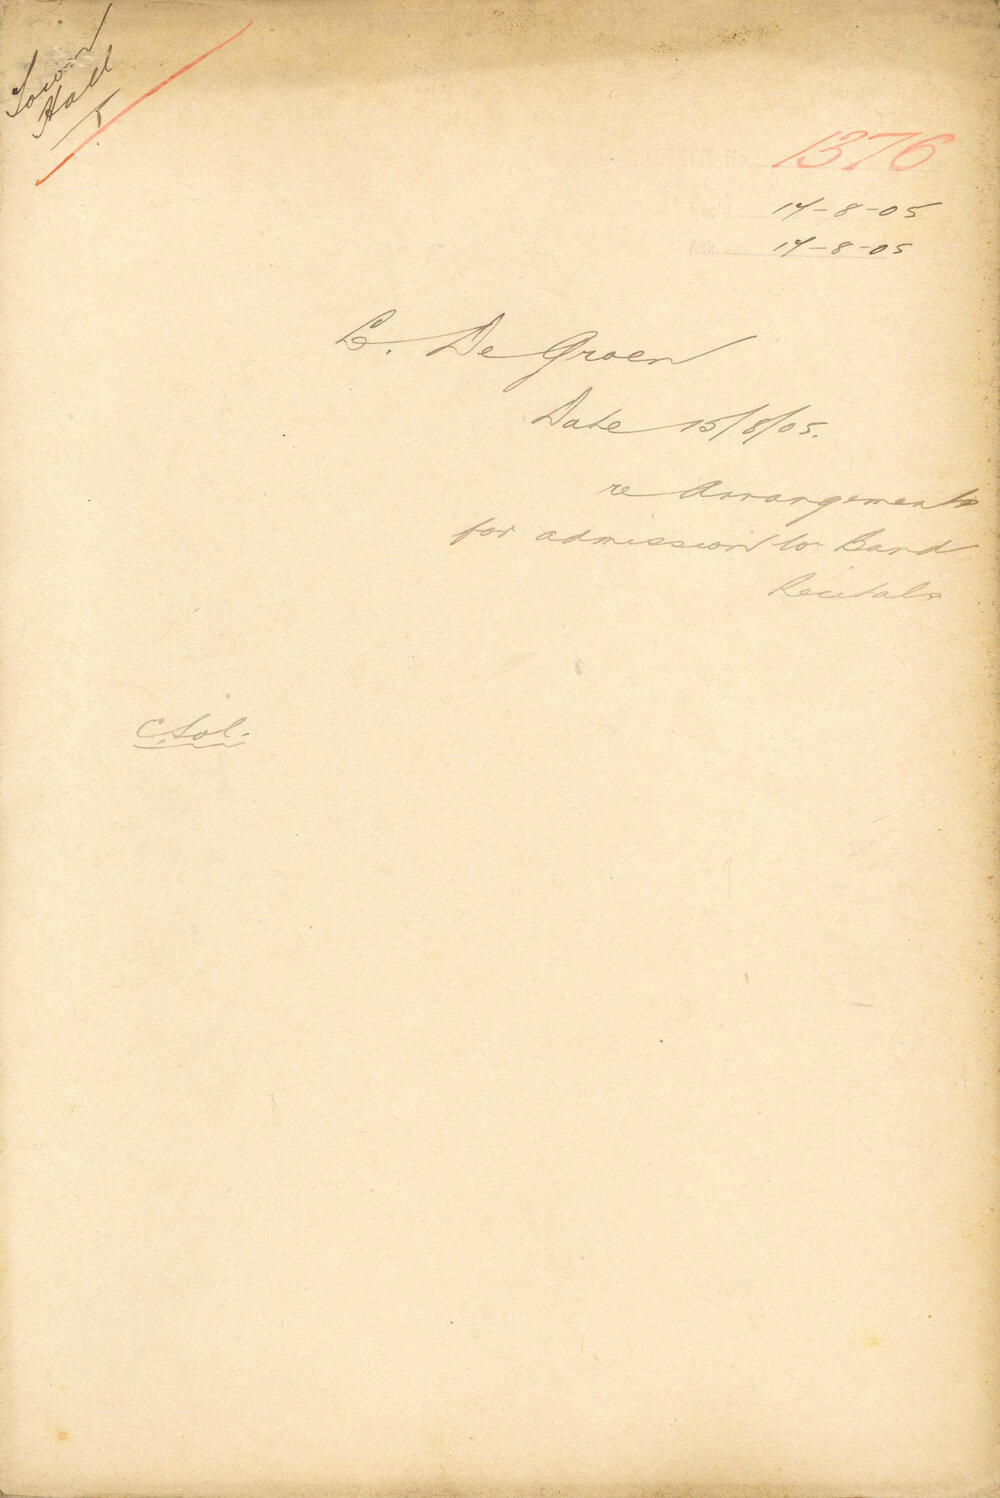 Town
Hall
LETTER No. 1376
Rec'd 17-8-05
Ack. 17-8-05
L. De Groen
Date 15/8/05.
re Arrangements
for admission to Band
Recitals
C Sol.